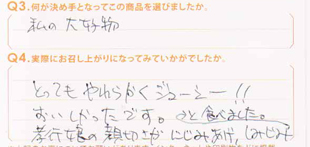 Q3.何が決め手となってこの商品を選びましたか。
私の大好物
Q4.実際にお召し上がりになってみていかがでしたか。
とってもやわらかくジューシー!!
おいしかったです。と食べました。
孝行娘の親切さがにじみあげ、しみじみ